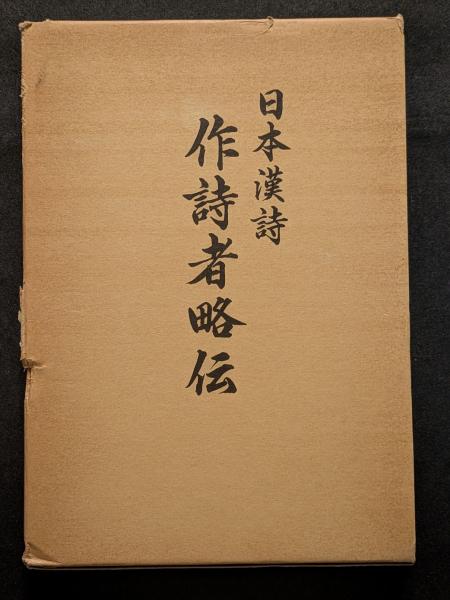 日本漢詩
作詩者略伝